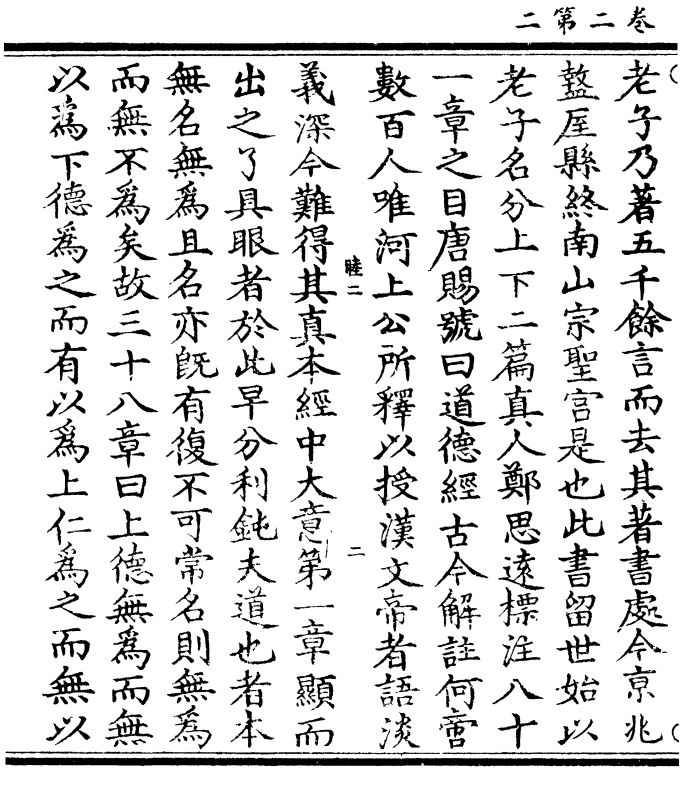 卷二第二
老子乃著五千餘言而去其著書處今京兆
盩厔縣終南山宗聖宫是也此書留世始以
老子名分上下二篇真人鄭思遠標注八十
一章之目唐賜號曰道德經古今解註何啻
數百人唯河上公所釋以授漢文帝者語淡
睦二
二
義深今難得其真本經中大意第一章顯而
出之了具眼者於此早分利鈍夫道也者本
無名無為且名亦旣有復不可常名則無為
而無不為矣故三十八章曰上德無為而無
以為下德為之而有以為上仁為之而無以